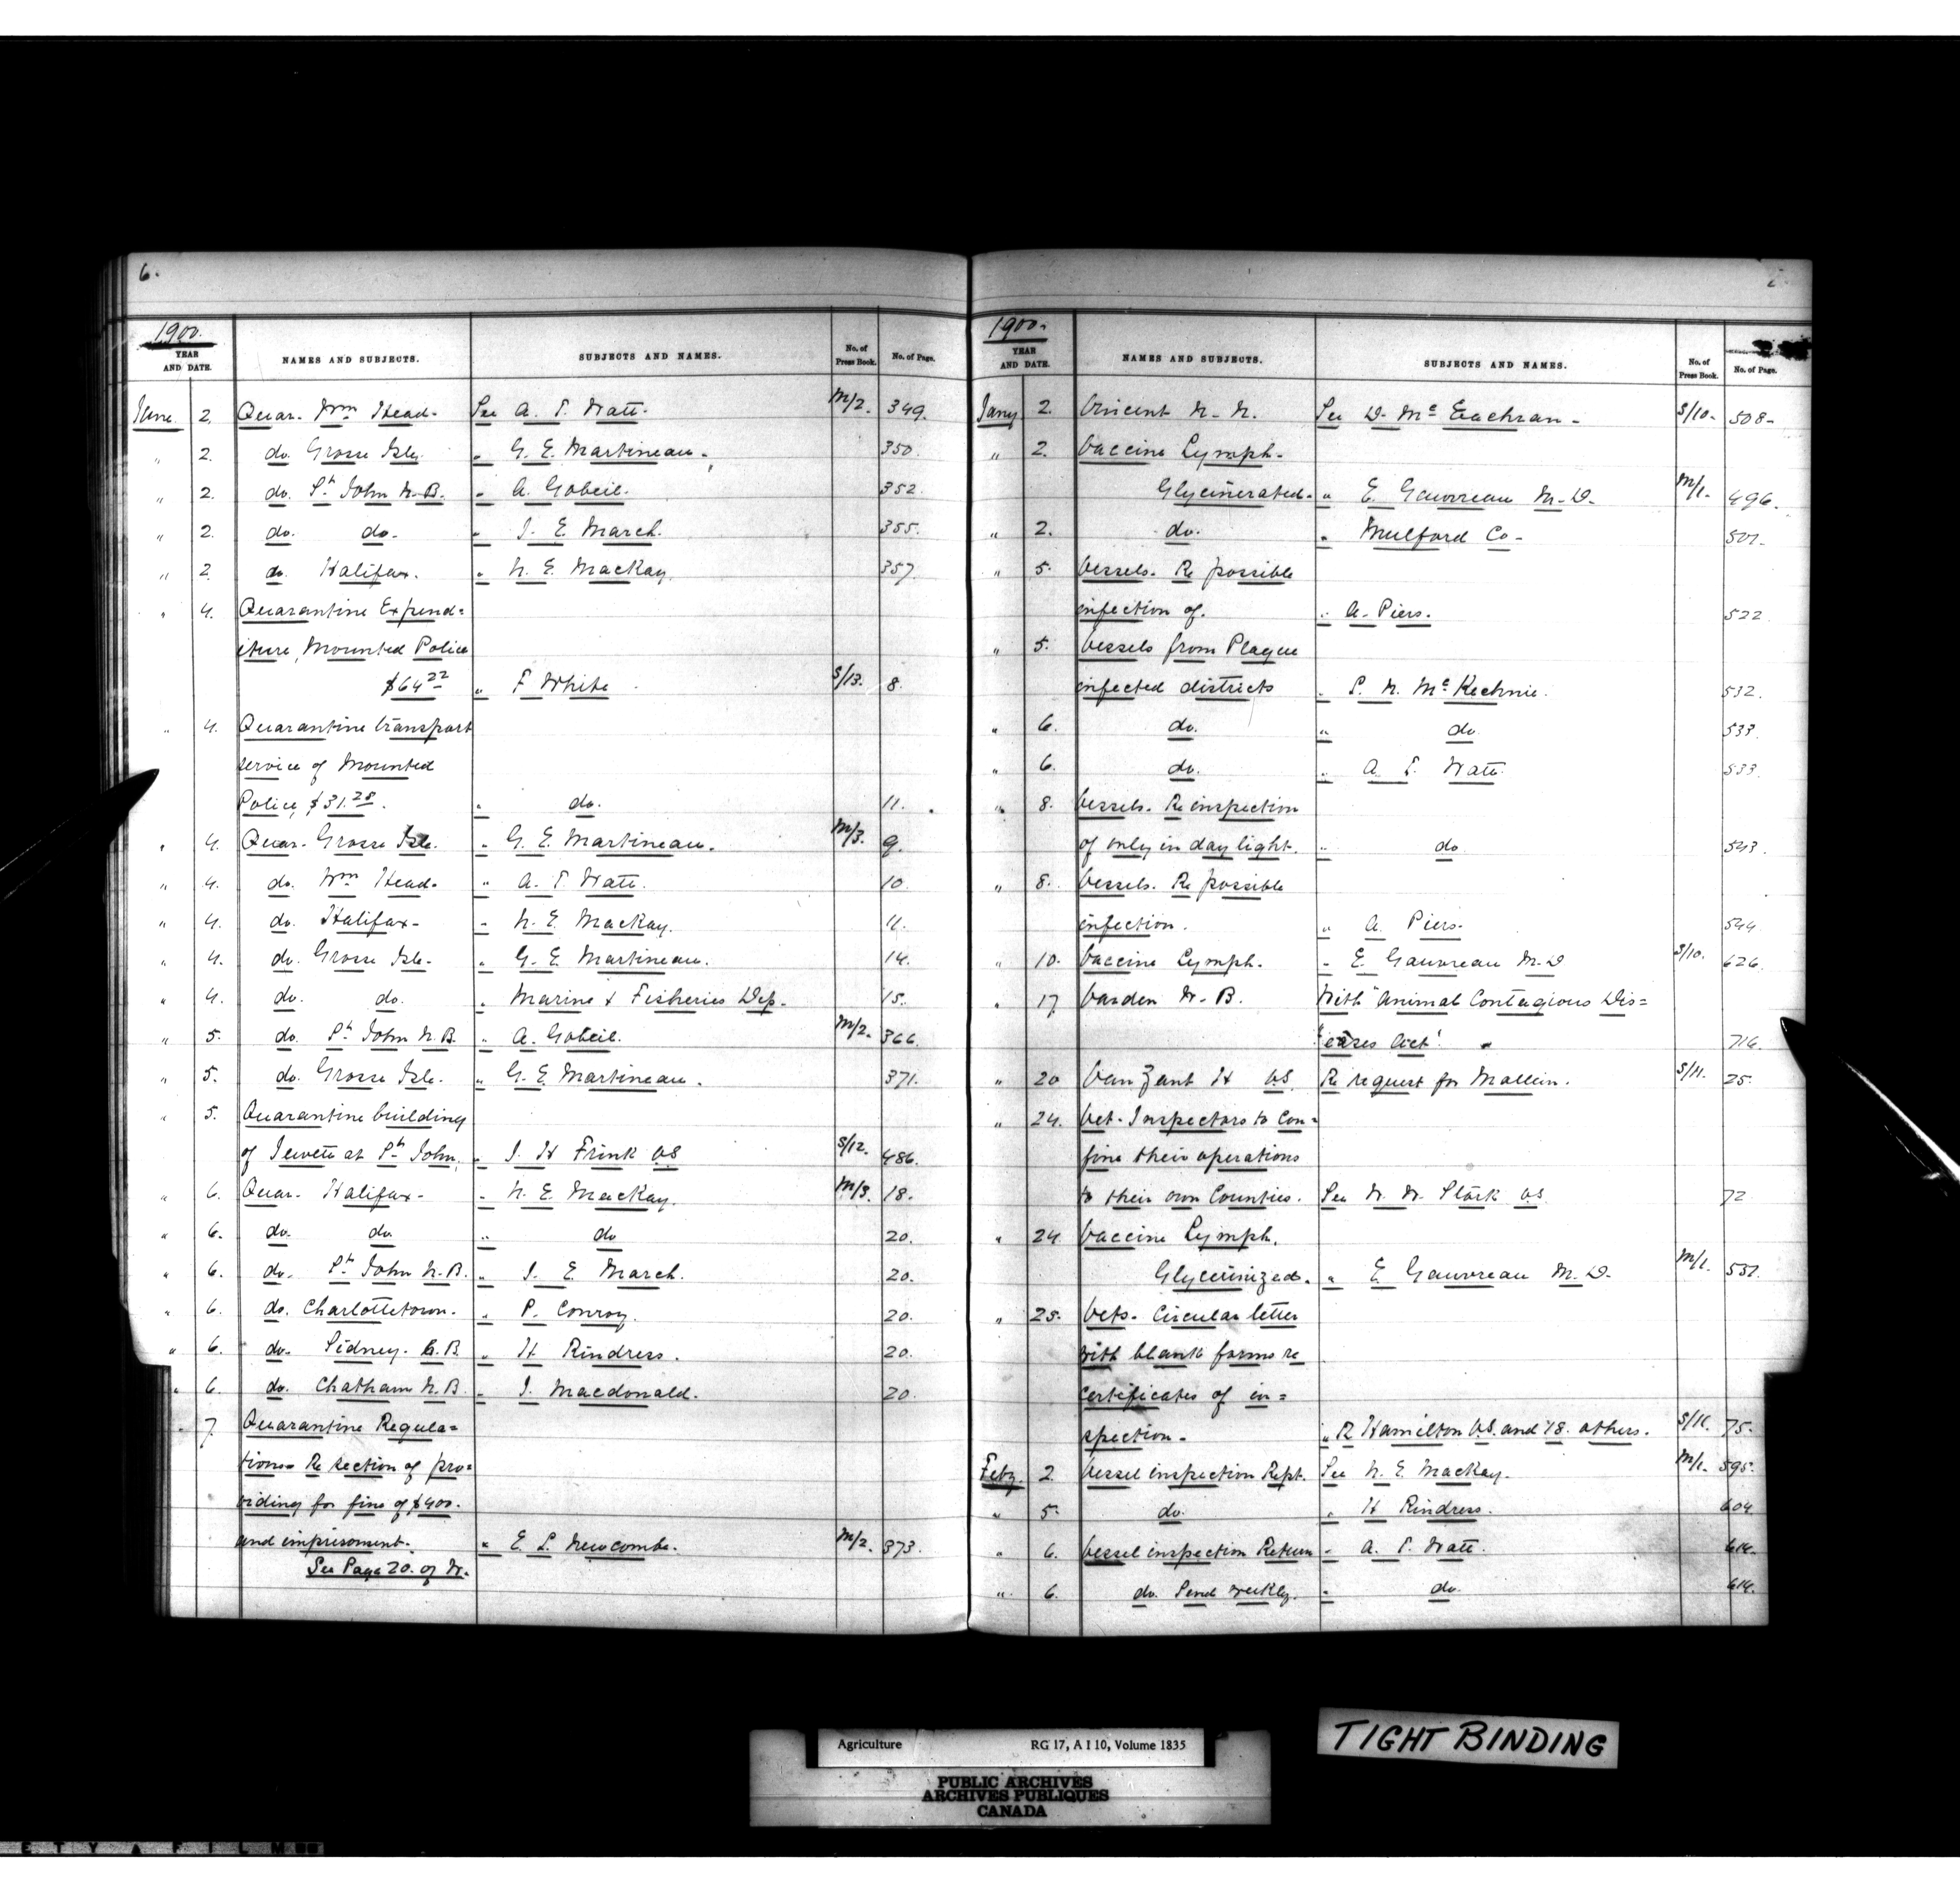 6.
1900.
YEAR AND DATE. NAMES AND SUBJECTS. SUBJECTS AND NAMES. No. of Press Book. No. of Page.
June 2. Quar. Wm Head. See A. T. Watt. M/2. 349.
" 2. do. Grosse Isle. " G. E. Martineau. 350.
" 2. do. St John N.B. " A. Gobeil. 352.
" 2. do. do. " J. E. March. 355.
" 2. do. Halifax. " N. E. MacKay. 357.
" 4. Quarantine Expend=
iture, Mounted Police
$64.22 " F White S/13. 8.
" 4. Quarantine transport
service of Mounted
Police, $31.28. " do. 11.
" 4. Quar. Grosse Isle. " G. E. Martineau. M/3. 9.
" 4. do. Wm Head. " A. T. Watt. 10.
" 4. do. Halifax. " N. E. MacKay. 11.
" 4. do. Grosse Isle. " G. E. Martineau. 14.
" 4. do. do. " Marine & Fisheries Dep. 15.
" 5. do. St John N.B. " A. Gobeil. M/2. 366.
" 5. do. Grosse Isle. " G. E. Martineau. 371.
" 5. Quarantine building
of Jewett at St John. " J. H Frink V.S S/12. 486.
" 6. Quar. Halifax. " N. E. MacKay. M/3. 18.
" 6. do. do. " do 20.
" 6. do. St John N.B. " J. E. March. 20.
" 6. do. Charlottetown. " P. Conroy. 20.
" 6. do. Sidney. C.B. " H Rindress. 20.
" 6. do. Chatham N.B. " J. Macdonald. 20.
" 7. Quarantine Regula=
tions. Re section of pro=
viding for fine of $400.
and imprisoment. " E. L. Newcombe. M/2. 373.
See Page 20. of W.
1900.
YEAR AND DATE. NAMES AND SUBJECTS. SUBJECTS AND NAMES. No. of Press Book. No. of Page.
Jany 2. Vincent N. N. See D. Mc Eachran. S/10. 508.
" 2. Vaccine Lymph.
Glycinerated. " E. Gauvreau M.D. M/1. 496.
" 2. do. " Mulford Co. 501.
" 5. Vessels. Re possible
infection of. " A. Piers. 522.
" 5. Vessels from Plague
infected districts " P. N. Mc Kechnie. 532.
" 6. do. " do. 533.
" 6. do. " A. T. Watt. 533.
" 8. Vessels. Re inspection
of only in day light. " do 543.
" 8. Vessels. Re possible
infection. " A. Piers. 544.
" 10. Vaccine Lymph. " E. Gauvreau M.D S/10. 626.
" 17 Varden W. B. With "Animal Contagious Dis=
eases Act! 716.
" 20 VanZant H V.S. Re request for Mallein. S/11. 25.
" 24. Vet. Inspectors to con=
fine their operations
to their own Counties. See W. W. Stork V.S. 72
" 24 Vaccine Lymph.
Glycerinized. " E. Gauvreau M.D. M/1. 587.
" 25. Vets. Circular letter
with blank forms re
certificates of in=
spection. " R Hamilton V.S. and 18. others. S/11. 75.
Feby. 2 Vessel inspection Rept. See N. E. MacKay. M/1. 595.
" 5. do. " H Rindress. 604.
" 6. Vessel inspection Return " A. T. Watt. 614.
" 6. do. Send weekly. " do. 614.
Agriculture RG 17, A I 10, Volume 1835
PUBLIC ARCHIVES
ARCHIVES PUBLIQUES
CANADA
TIGHT BINDING